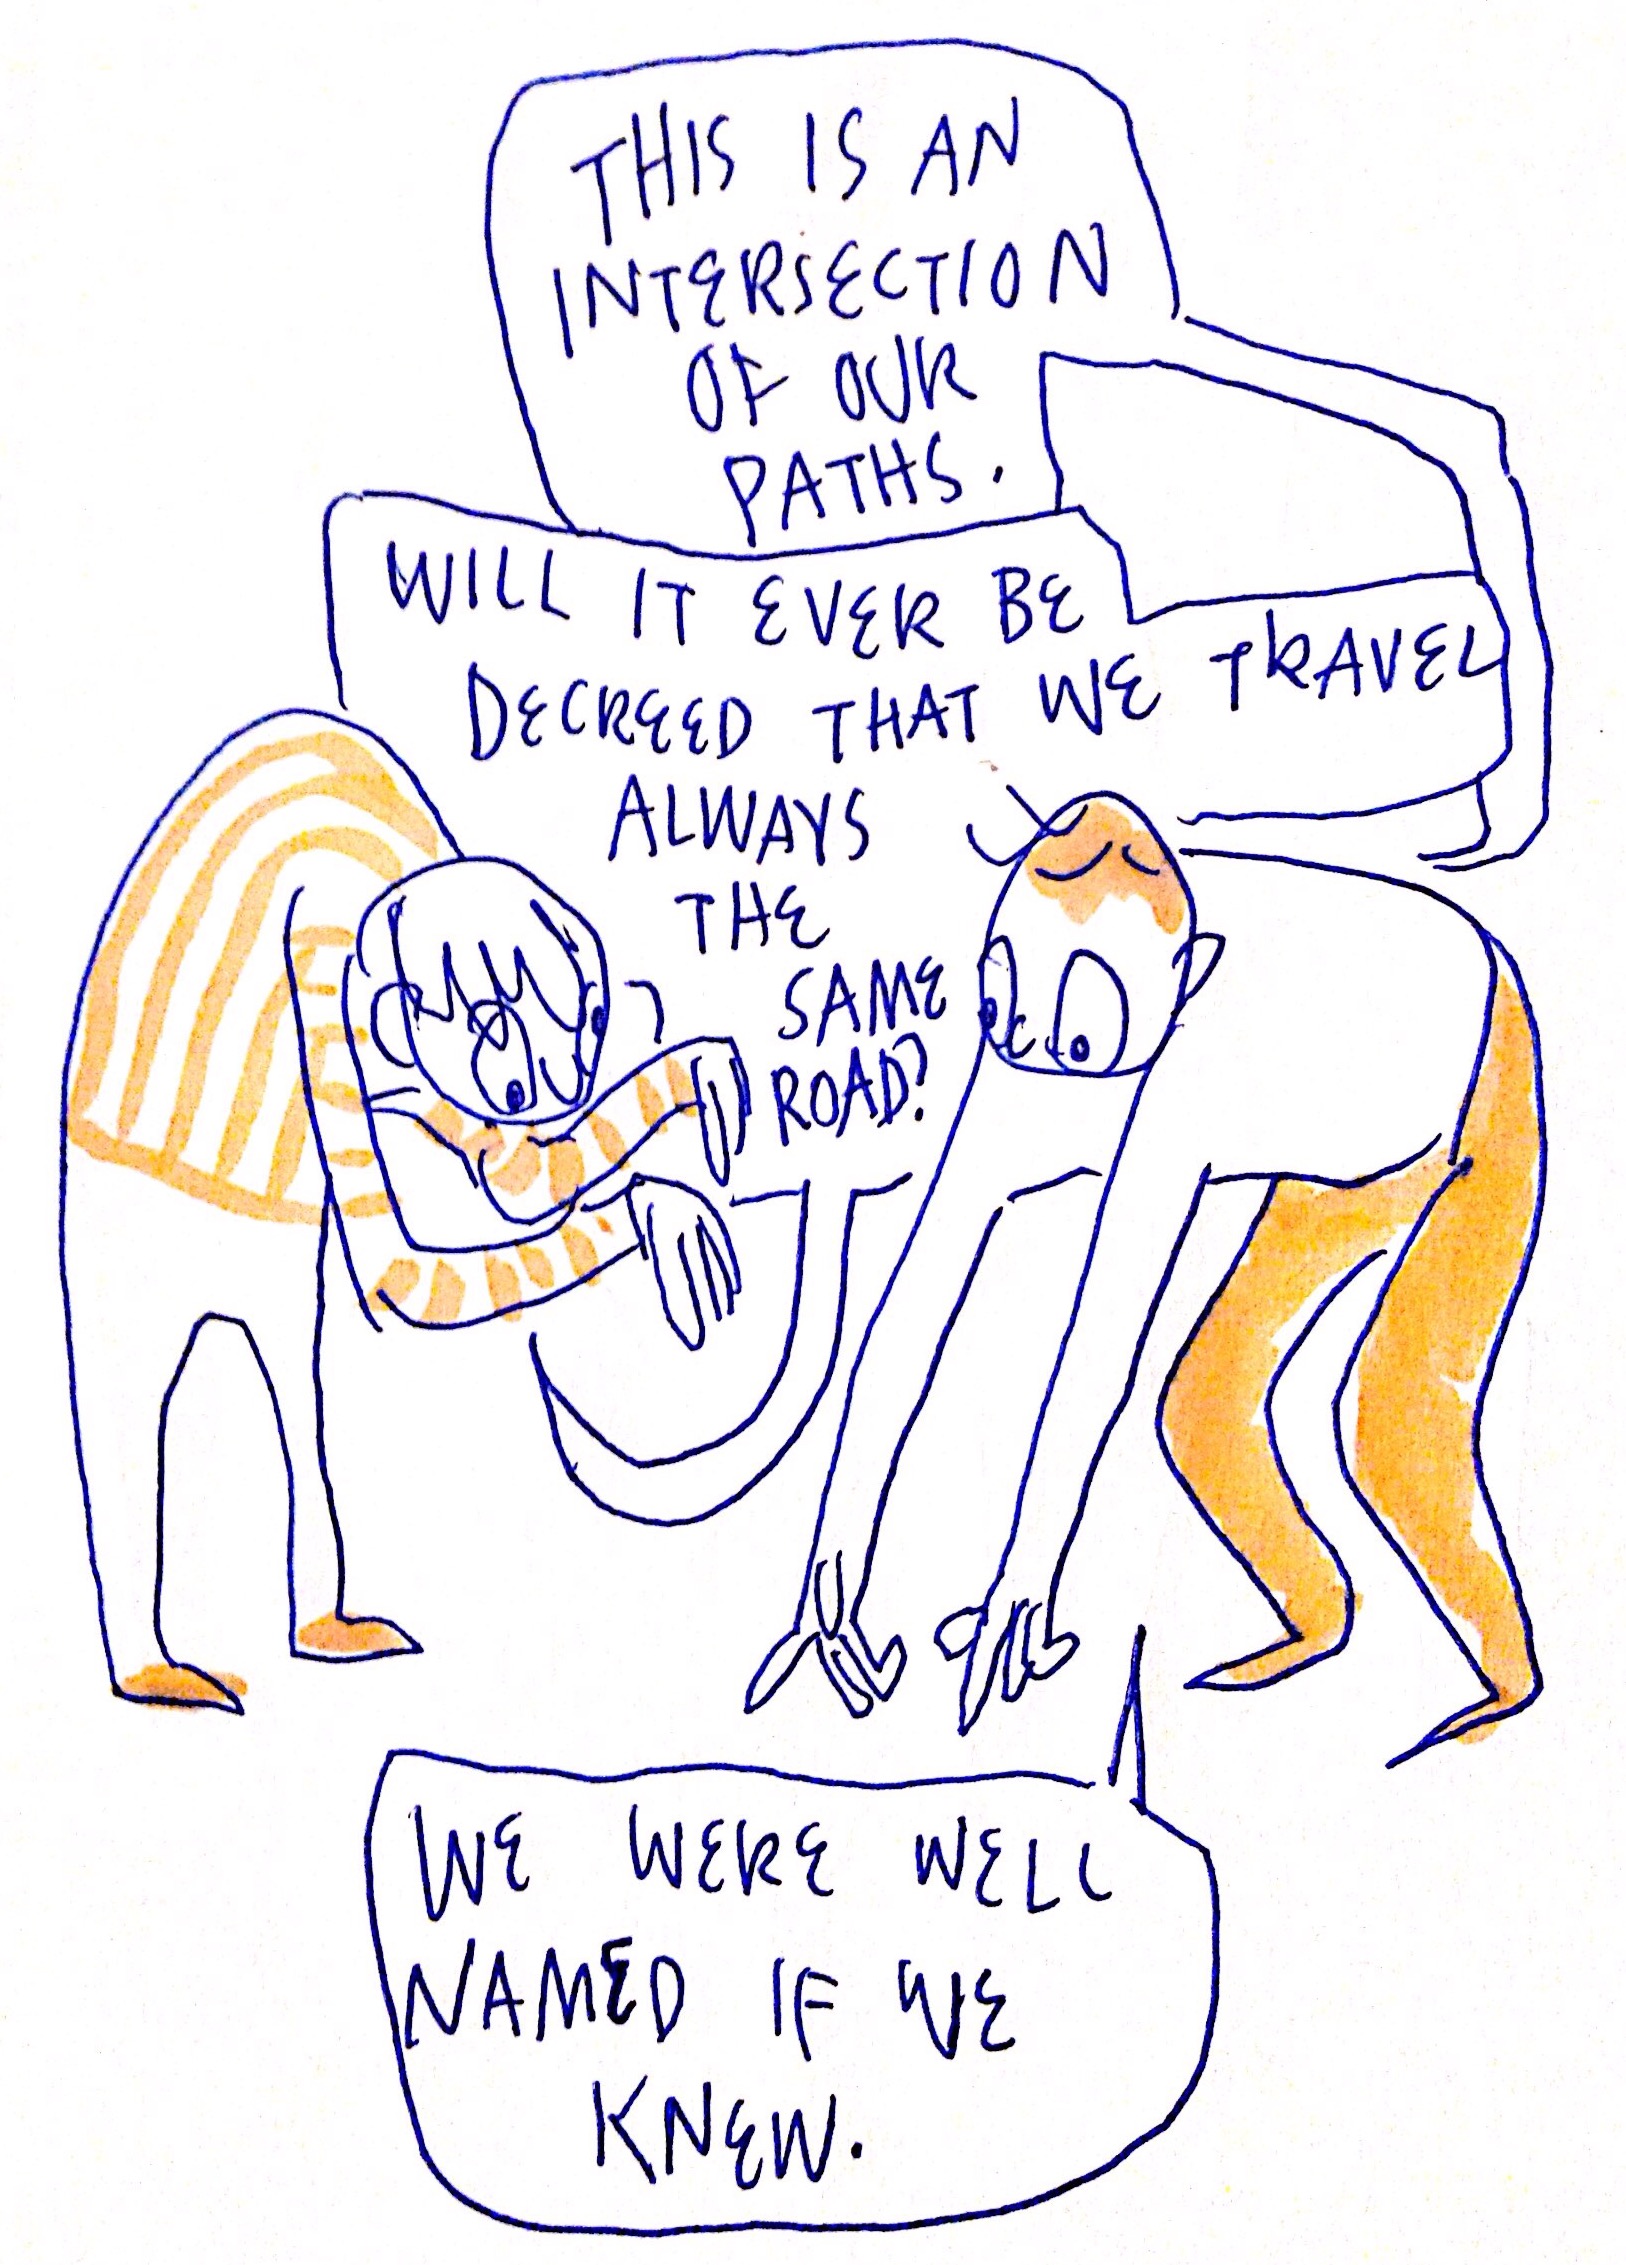 THIS IS AN
INTERSECTION
OF OUR
PATHS.
WILL IT EVER BE
DECREED THAT WE TRAVEL
ALWAYS
THE
SAME
ROAD?
WE WERE WELL
NAMED IF WE
KNEW.